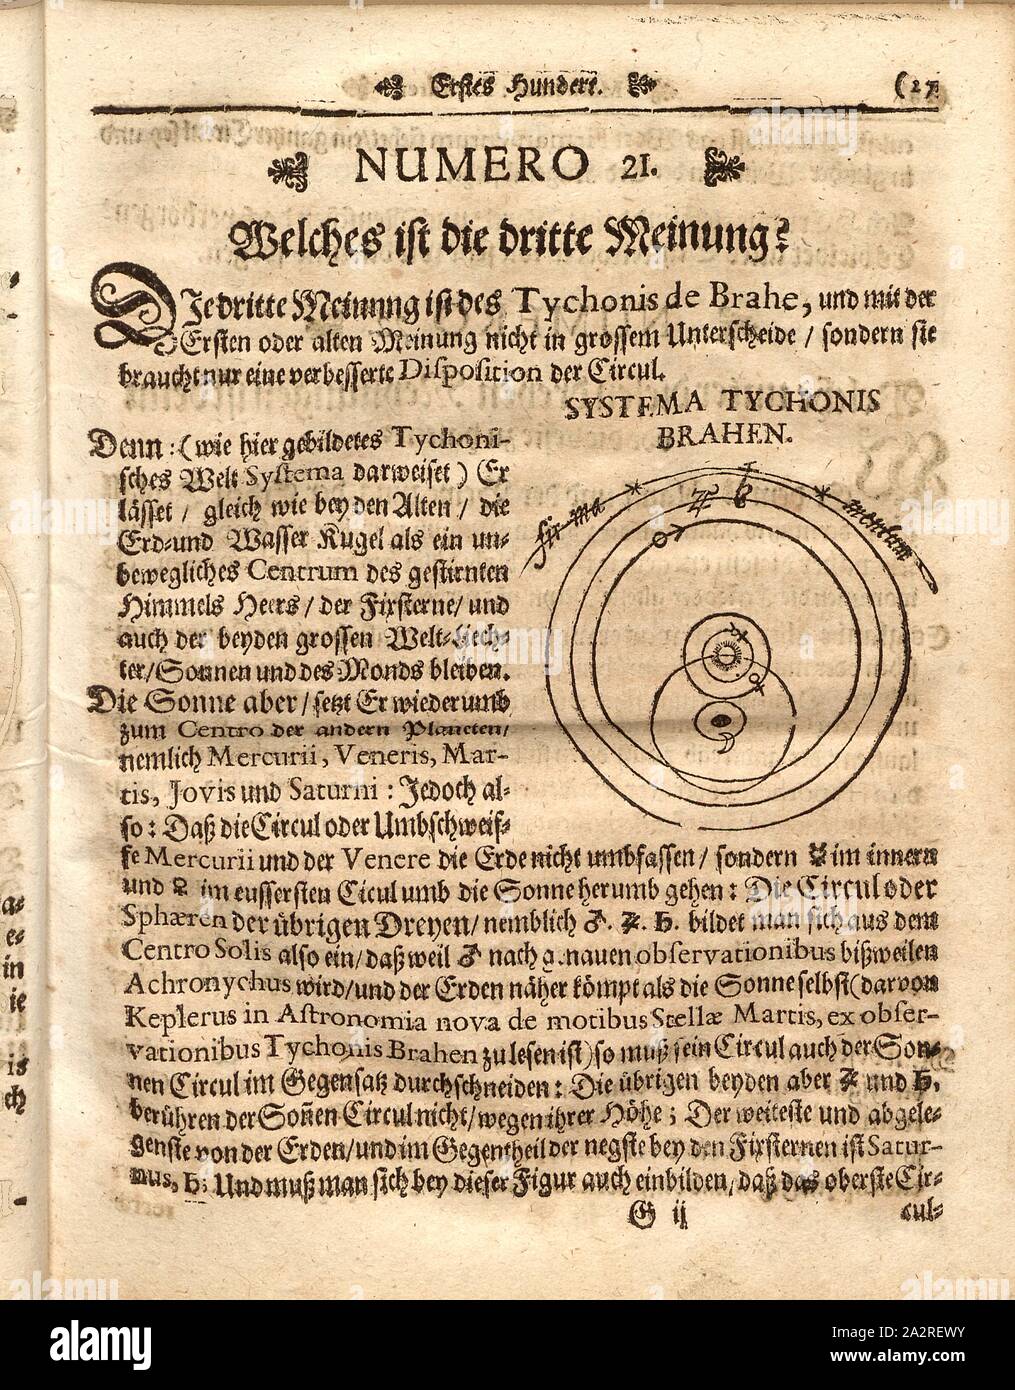 Erstes Hundert. (27
NUMERO 21.
Welches ist die dritte Meinung?
DJe dritte Meinung ist des Tychonis de Brahe, und mit der
Ersten oder alten Meinung nicht in grossem Unterscheide / sondern sie
braucht nur eine verbesserte Disposition der Circul.
SYSTEMA TYCHONIS
BRAHEN.
fir ma
mentum
♄
♃
♂
☿
♀
Denn: (wie hier gebildetes Tychoni-
sches Welt Systema darweiset) Er
lässet / gleich wie bey den Alten / die
Erd- und Wasser Kugel als ein un-
bewegliches Centrum des gestirnten
Himmels Heers / der Fixsterne / und
auch der beyden grossen Welt-Liech-
ter / Sonnen und des Monds bleiben.
Die Sonne aber / setzt Er wiederumb
zum Centro der andern Planeten /
nemlich Mercurii, Veneris, Mar-
tis, Jovis und Saturni: Jedoch al-
so: Daß die Circul oder Umbschweif-
fe Mercurii und der Venere die Erde nicht umbfassen / sondern ☿ im innern
und ♀ im eussersten Cicul umb die Sonne herumb gehen: Die Circul oder
Sphæren der übrigen Dreyen / nemblich ♂. ♃. ♄. bildet man sich aus dem
Centro Solis also ein / daß weil ♂ nach genauen observationibus bißweilen
Achronychus wird / und der Erden näher kömpt als die Sonne selbst (darvon
Keplerus in Astronomia nova de motibus Stellæ Martis, ex obser-
vationibus Tychonis Brahen zu lesen ist) so muß sein Circul auch der Son-
nen Circul im Gegensatz durchschneiden: Die übrigen beyden aber ♃ und ♄.
berühren der Soñen Circul nicht / wegen ihrer Höhe; Der weiteste und abgele-
genste von der Erden / und im Gegentheil der negste bey den Fixsternen ist Satur-
nus, ♄; Und muß man sich bey dieser Figur auch einbilden, daß das oberste Cir-
G ij cul-
a-
e-
in
ie
is
ch
alamy
Image ID: A2REWY
www.alamy.com